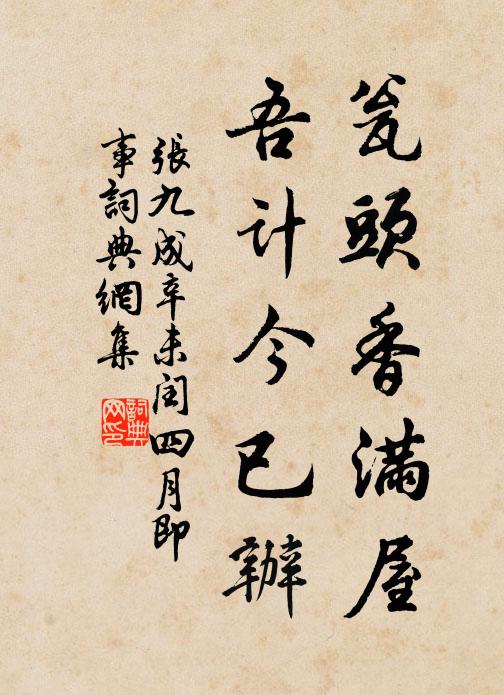 瓮頭香滿屋
吾计今已辦
張九成辛未闰四月即
事詞典網集
詞典
网印